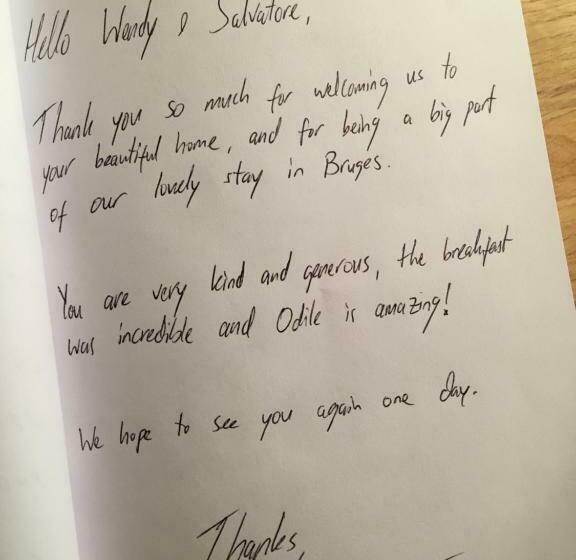 Hello Wendy & Salvatore,
Thank you so much for welcoming us to
your beautiful home, and for being a big part
of our lovely stay in Bruges.
You are very kind and generous, the breakfast
was incredible and Odile is amazing!
We hope to see you again one day.
Thanks,